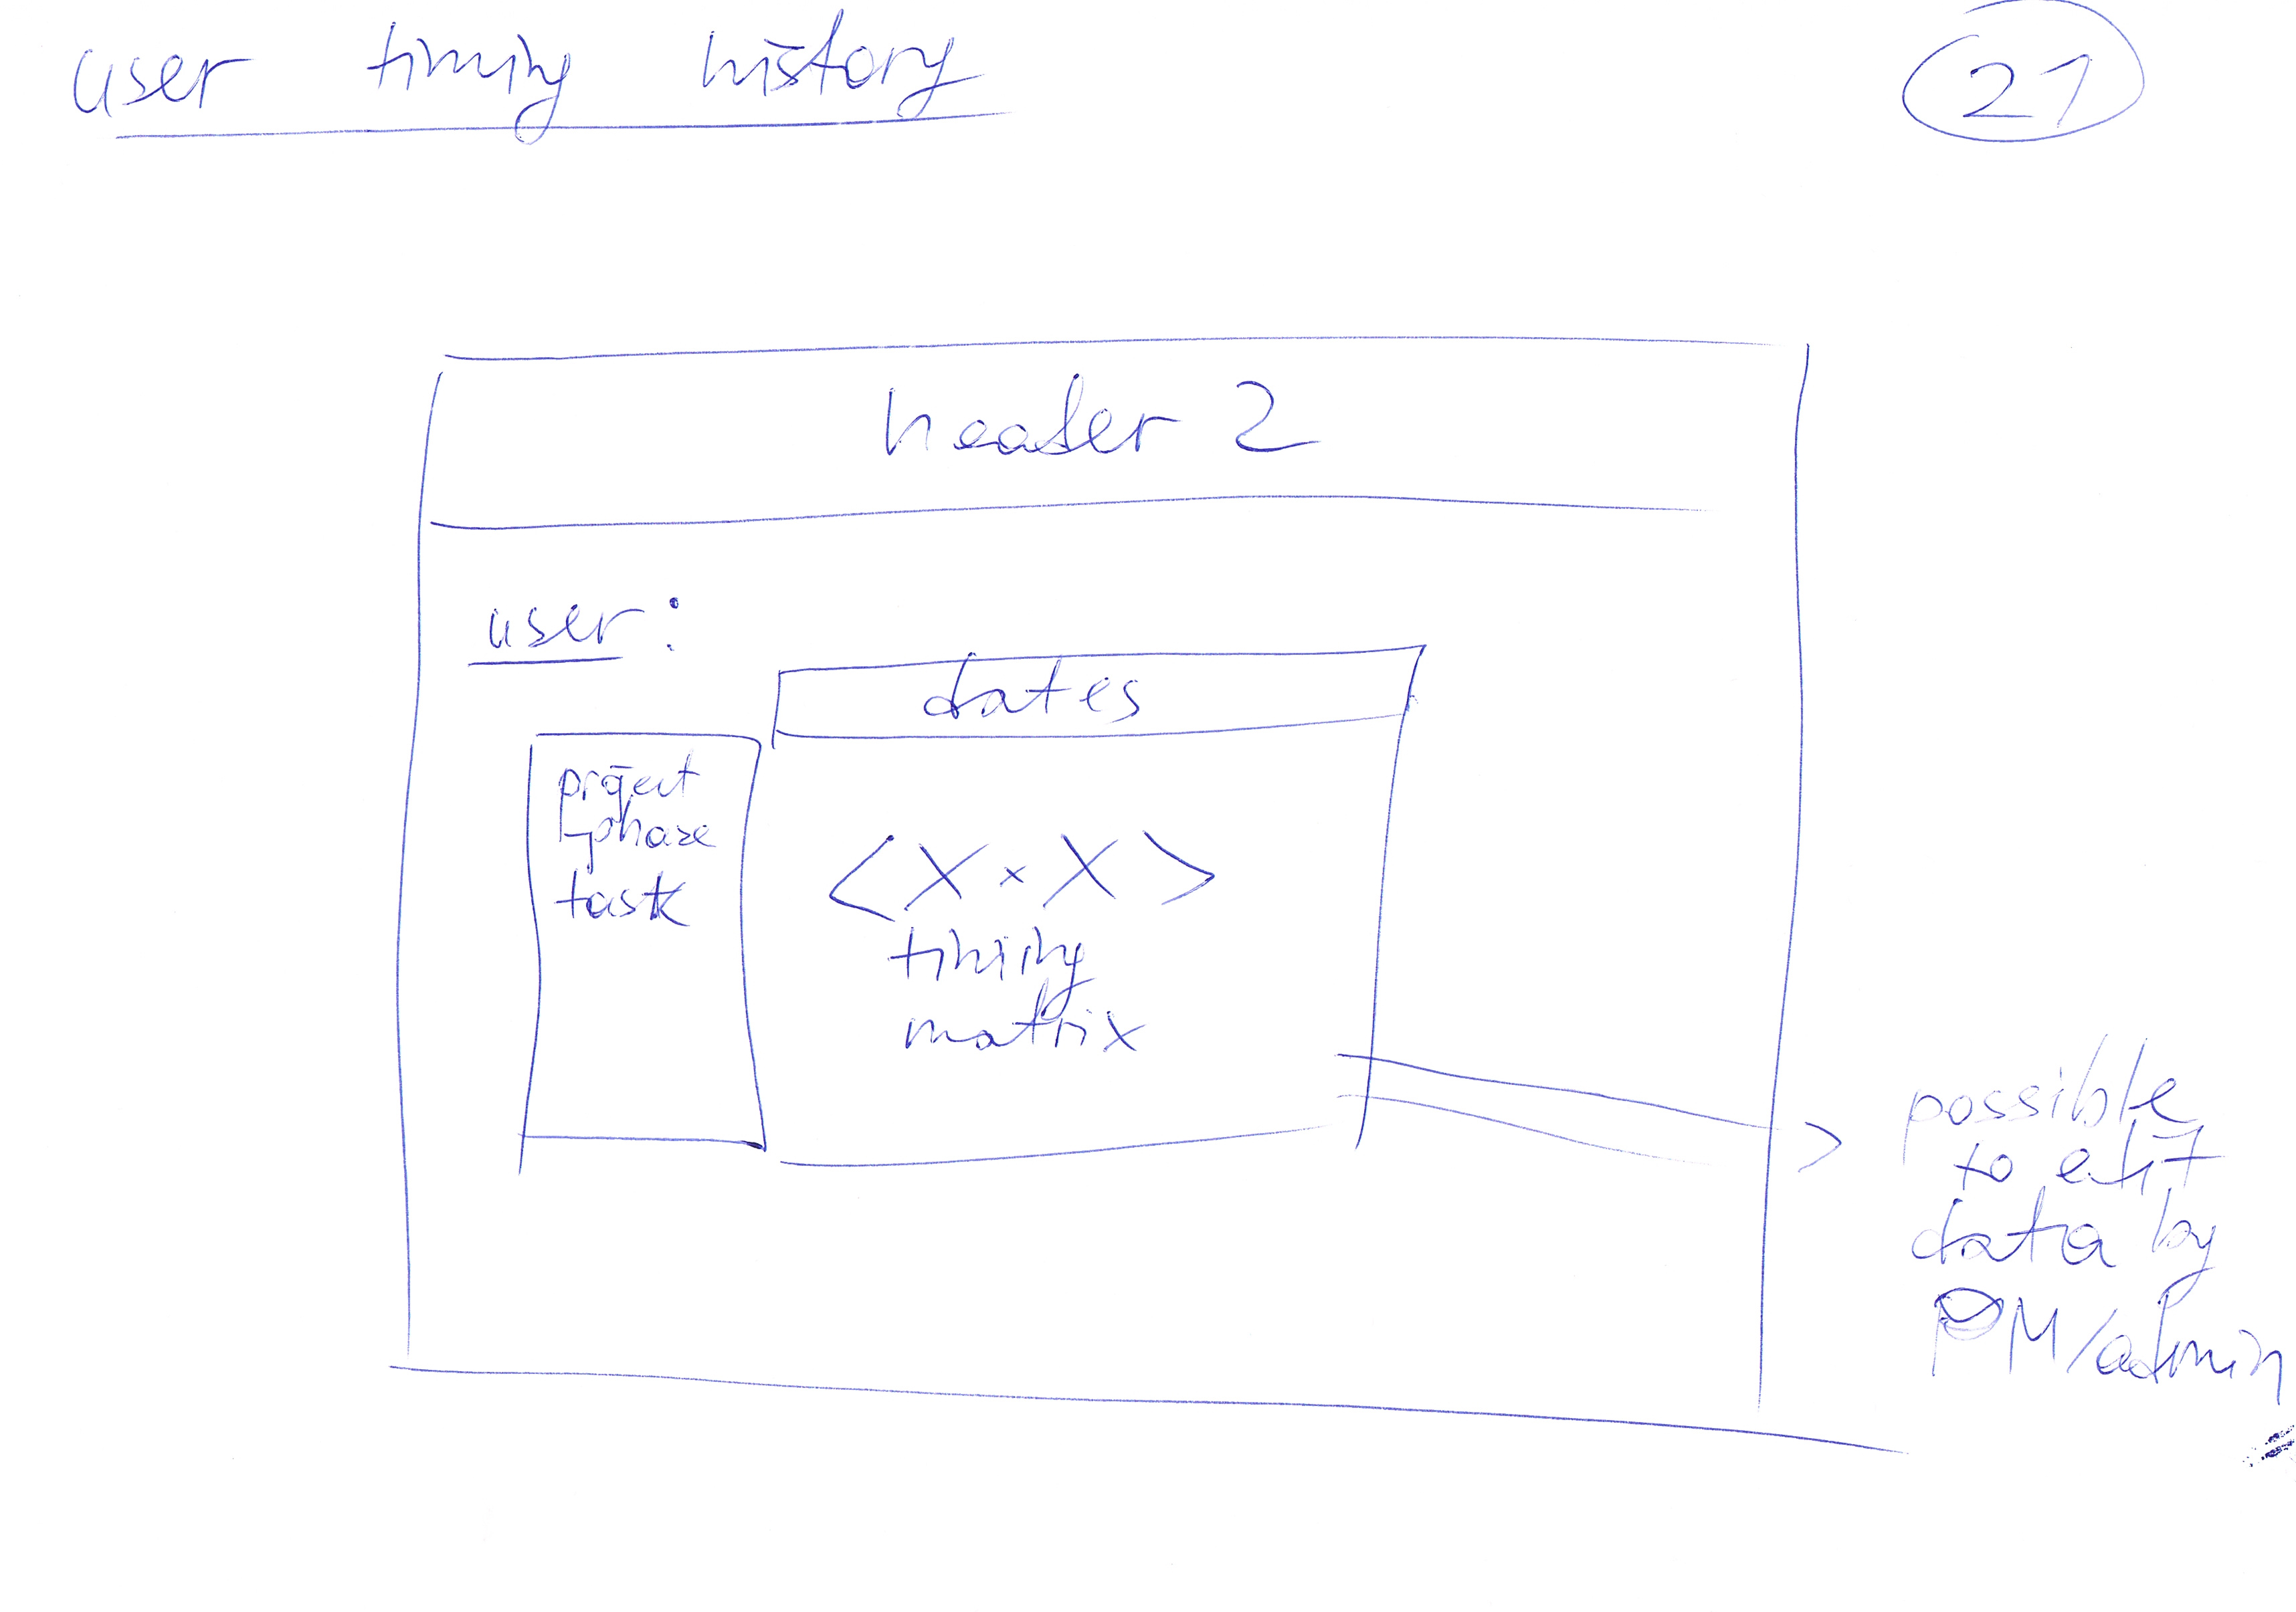 user timing history
21
header 2
user:
dates
project
phase
task
<X × X>
timing
matrix
possible
to edit
data by
PM/admin